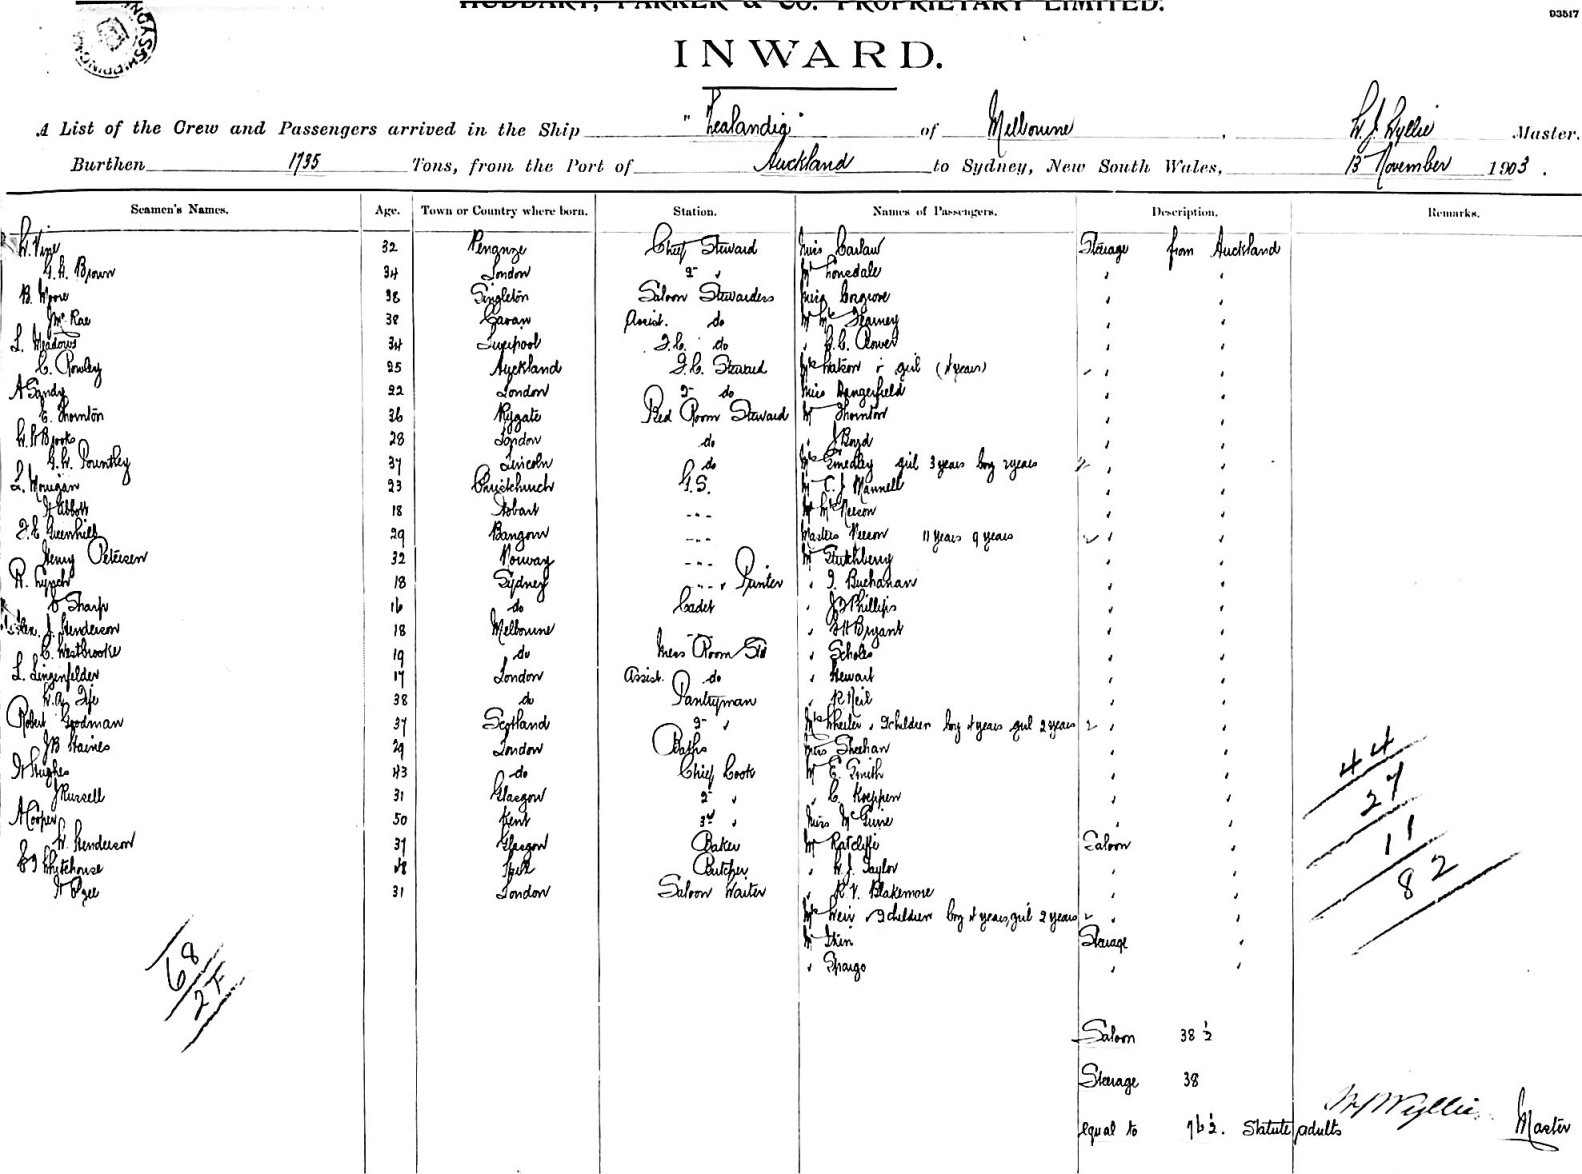 HUDDART, PARKER & CO. PROPRIETARY LIMITED.
93517
INWARD.
A List of the Crew and Passengers arrived in the Ship "Zealandia" of Melbourne, W. J. Wyllie Master.
Burthen 1735 Tons, from the Port of Auckland to Sydney, New South Wales, 13 November 1903.
Seamen's Names. Age. Town or Country where born. Station. Names of Passengers. Description. Remarks.
W. Vine 32 Penanze Chief Steward Miss Carlaw Steerage from Auckland
G. H. Brown 34 London 2nd " Mr Lonsdale " "
B. Moore 38 Singleton Saloon Stewardess Miss Cosgrove " "
J McRae 38 Cavan Assist. do Mr Mrs Fearney " "
L. Meadows 34 Liverpool F.C. do " " "
C. Rowley 25 Auckland F.C. Steward Mrs Watson & girl (4 years) " "
A Sandy 22 London 2nd do Miss Dangerfield " "
E. Thornton 36 Rygate Bed Room Steward Mr Thornton " "
W. H Brooks 28 London do " J Boyd " "
G. W. Pountley 37 Lincoln do Mrs Smedley girl 3 years boy 2 years " "
L. Mourigan 23 Christchurch G.S. Mr C. J. Mannell " "
H Abbott 18 Hobart - " - Mr Mrs " "
F. E Greenhill 29 Bangow - " - Masters 11 years 9 years " "
Henry Petersen 32 Norway - " - Mr Stutchberry " "
R. Lynch 18 Sydney - " - Printer " Buchanan " "
Sharp 16 do Cadet " Phillips " "
Alex. J. Henderson 18 Melbourne - " - " Bryant " "
C. Westbrooke 19 do Mess Room Std " Scholes " "
L. Lingenfelder 17 London Assist. do " Stewart " "
W. A. Fyfe 38 do Pantryman " R Neil " "
Robert Goodman 37 Scotland 2nd " Mrs Wheeler & 2 children boy 4 years girl 2 years " "
J B Haines 29 London Baths Miss Sheehan " "
H Hughes 43 do Chief Cook Mr E. Smith " "
J Russell 31 Glasgow 2nd " " C. Koeppen " "
A Cooper 50 Kent 3rd " Miss McGuire " "
W. Henderson 37 Glasgow Baker Mr Ratcliffe Saloon "
Whitehouse 48 Butcher " W. J. Taylor " "
H Pyee 31 London Saloon Waiter " R. V. Blakemore " "
Mrs Weir & 2 children boy 4 years, girl 2 years " "
Mr Steerage "
" Spargo " "
44
27
11
82
68
27
Saloon 38 ½
Steerage 38
equal to 76 ½. Statute adults
W J Wyllie Master